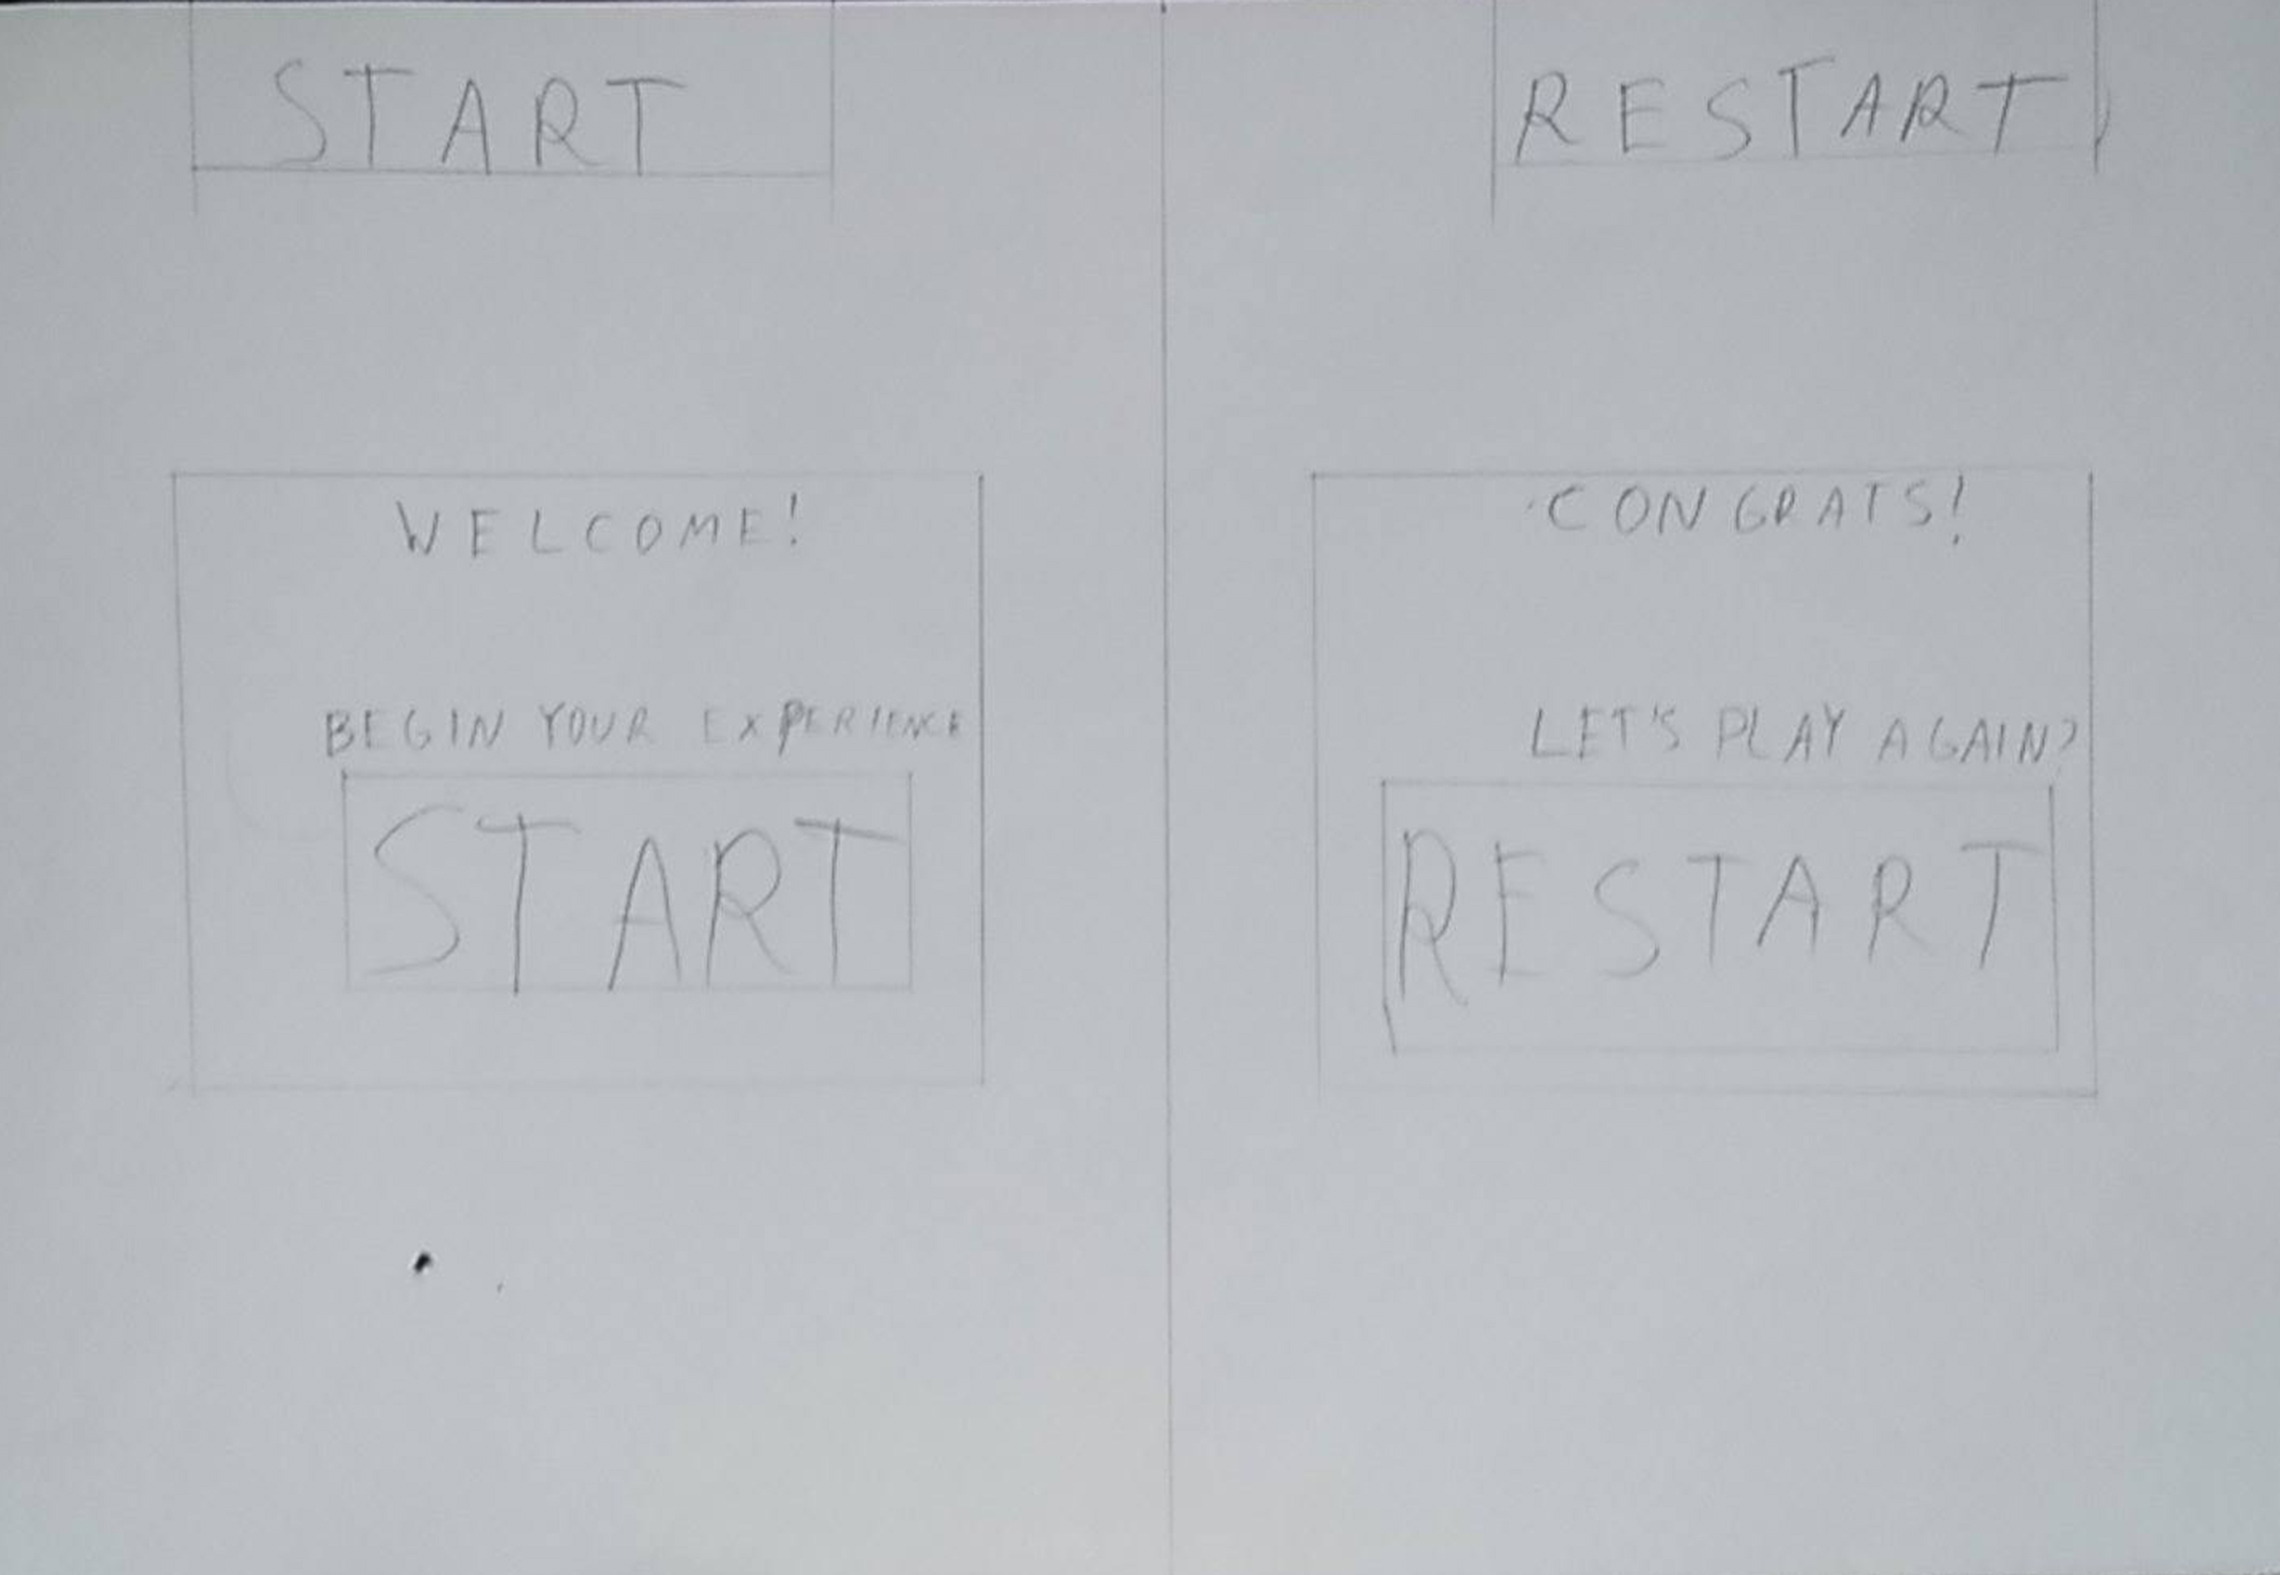 START
WELCOME!
BEGIN YOUR EXPERIENCE
START
RESTART
CONGRATS!
LET'S PLAY AGAIN?
RESTART